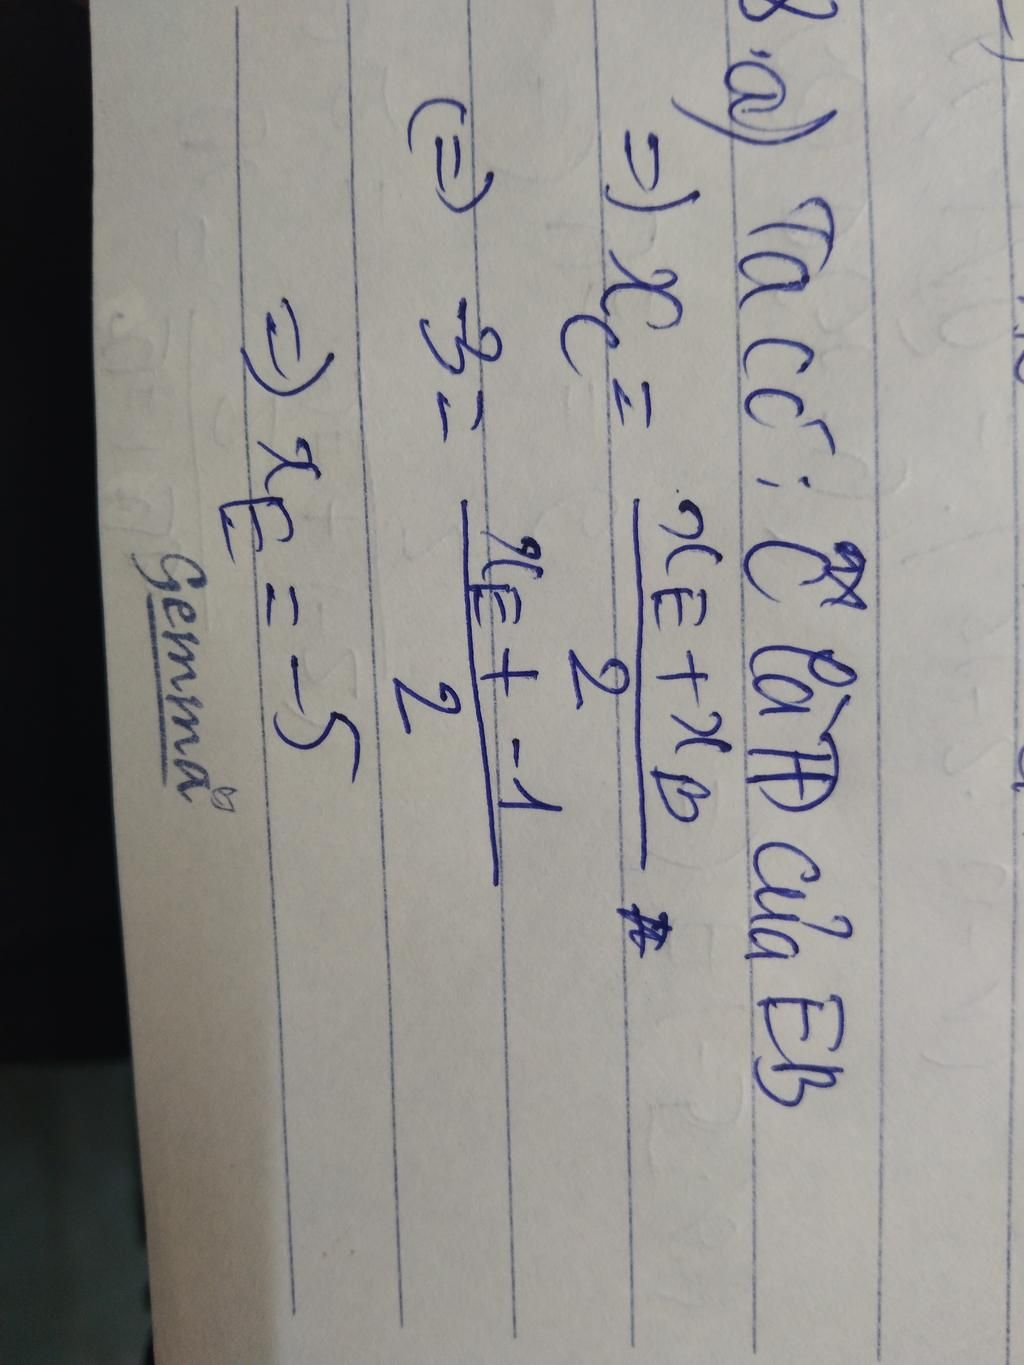 8.a) Ta có: C là TĐ của EB
=) x_C = \frac{x_E + x_B}{2}
(=) -3 = \frac{x_E + -1}{2}
=) x_E = -5
Gemma